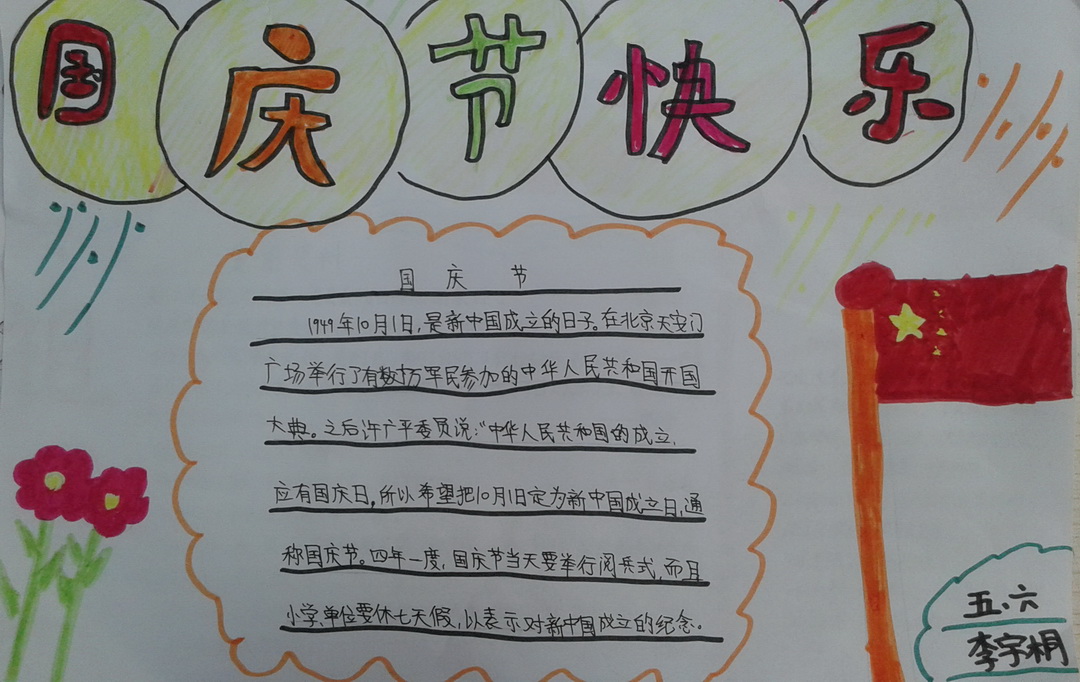 国庆节快乐
国庆节
1949年10月1日，是新中国成立的日子。在北京天安门
广场举行了有数十万军民参加的中华人民共和国开国
大典。之后许广平委员说：“中华人民共和国的成立，
应有国庆日，所以希望把10月1日定为新中国成立日，通
称国庆节。四年一度，国庆节当天要举行阅兵式，而且
小学，单位要休七天假，以表示对新中国成立的纪念。
五.六
李宇桐